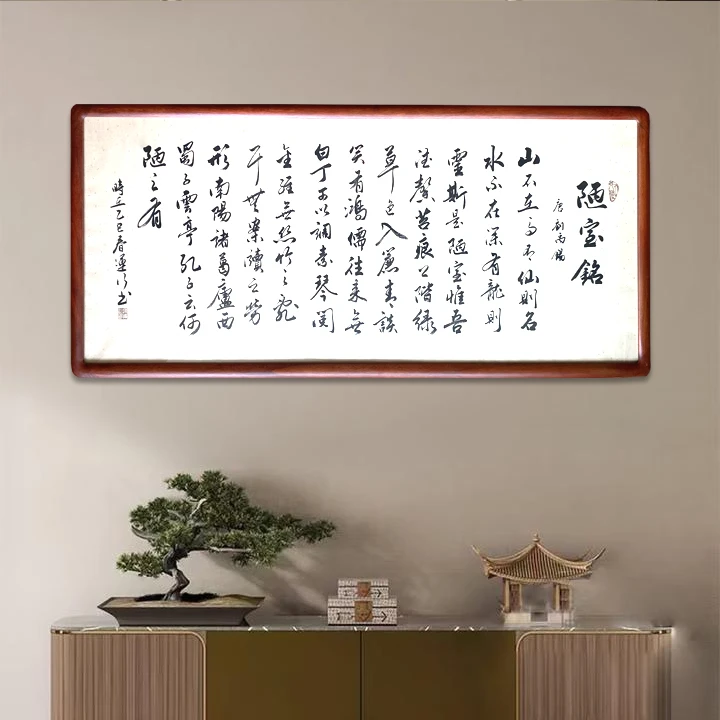 陋室銘
唐劉禹錫
山不在高有仙則名
水不在深有龍則
靈斯是陋室惟吾
德馨苔痕上階綠
草色入簾青談
笑有鴻儒往來無
白丁可以調素琴閱
金經無絲竹之亂
耳無案牘之勞
形南陽諸葛廬西
蜀子雲亭孔子云何
陋之有
時在乙巳春書